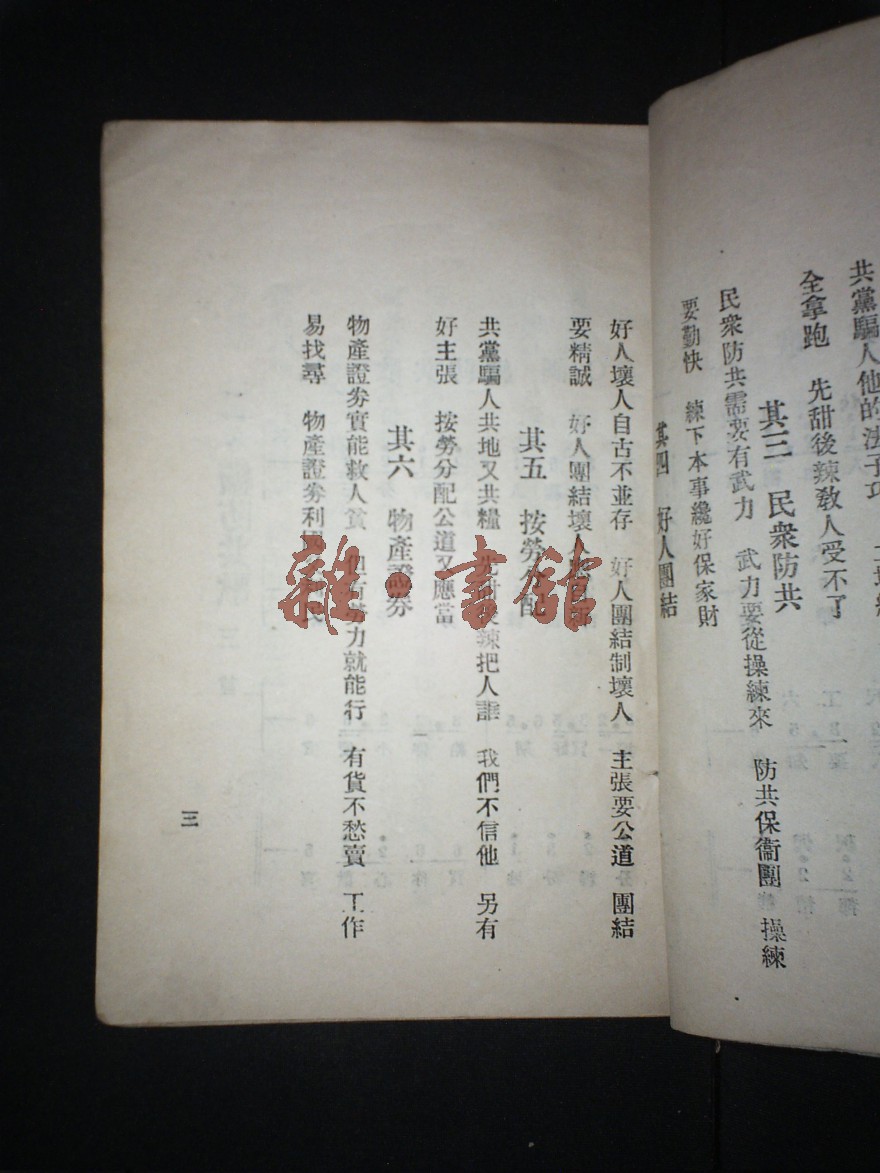 共黨騙人他的法子
全拿跑　先甜後辣教人受不了
其三　民衆防共
民衆防共需要有武力　武力要從操練來　防共保衞團　操練
要勤快　練下本事纔好保家財
其四　好人團結
好人壞人自古不並存　好人團結制壞人　主張要公道　團結
要精誠　好人團結壞人
其五　按勞分配
共黨騙人共地又共糧　辣把人誆　我們不信他　另有
好主張　按勞分配公道又應當
其六　物產證券
物產證券實能救人貧　力就能行　有貨不愁賣　工作
易找尋　物產證券利國　民
三
雜·書館